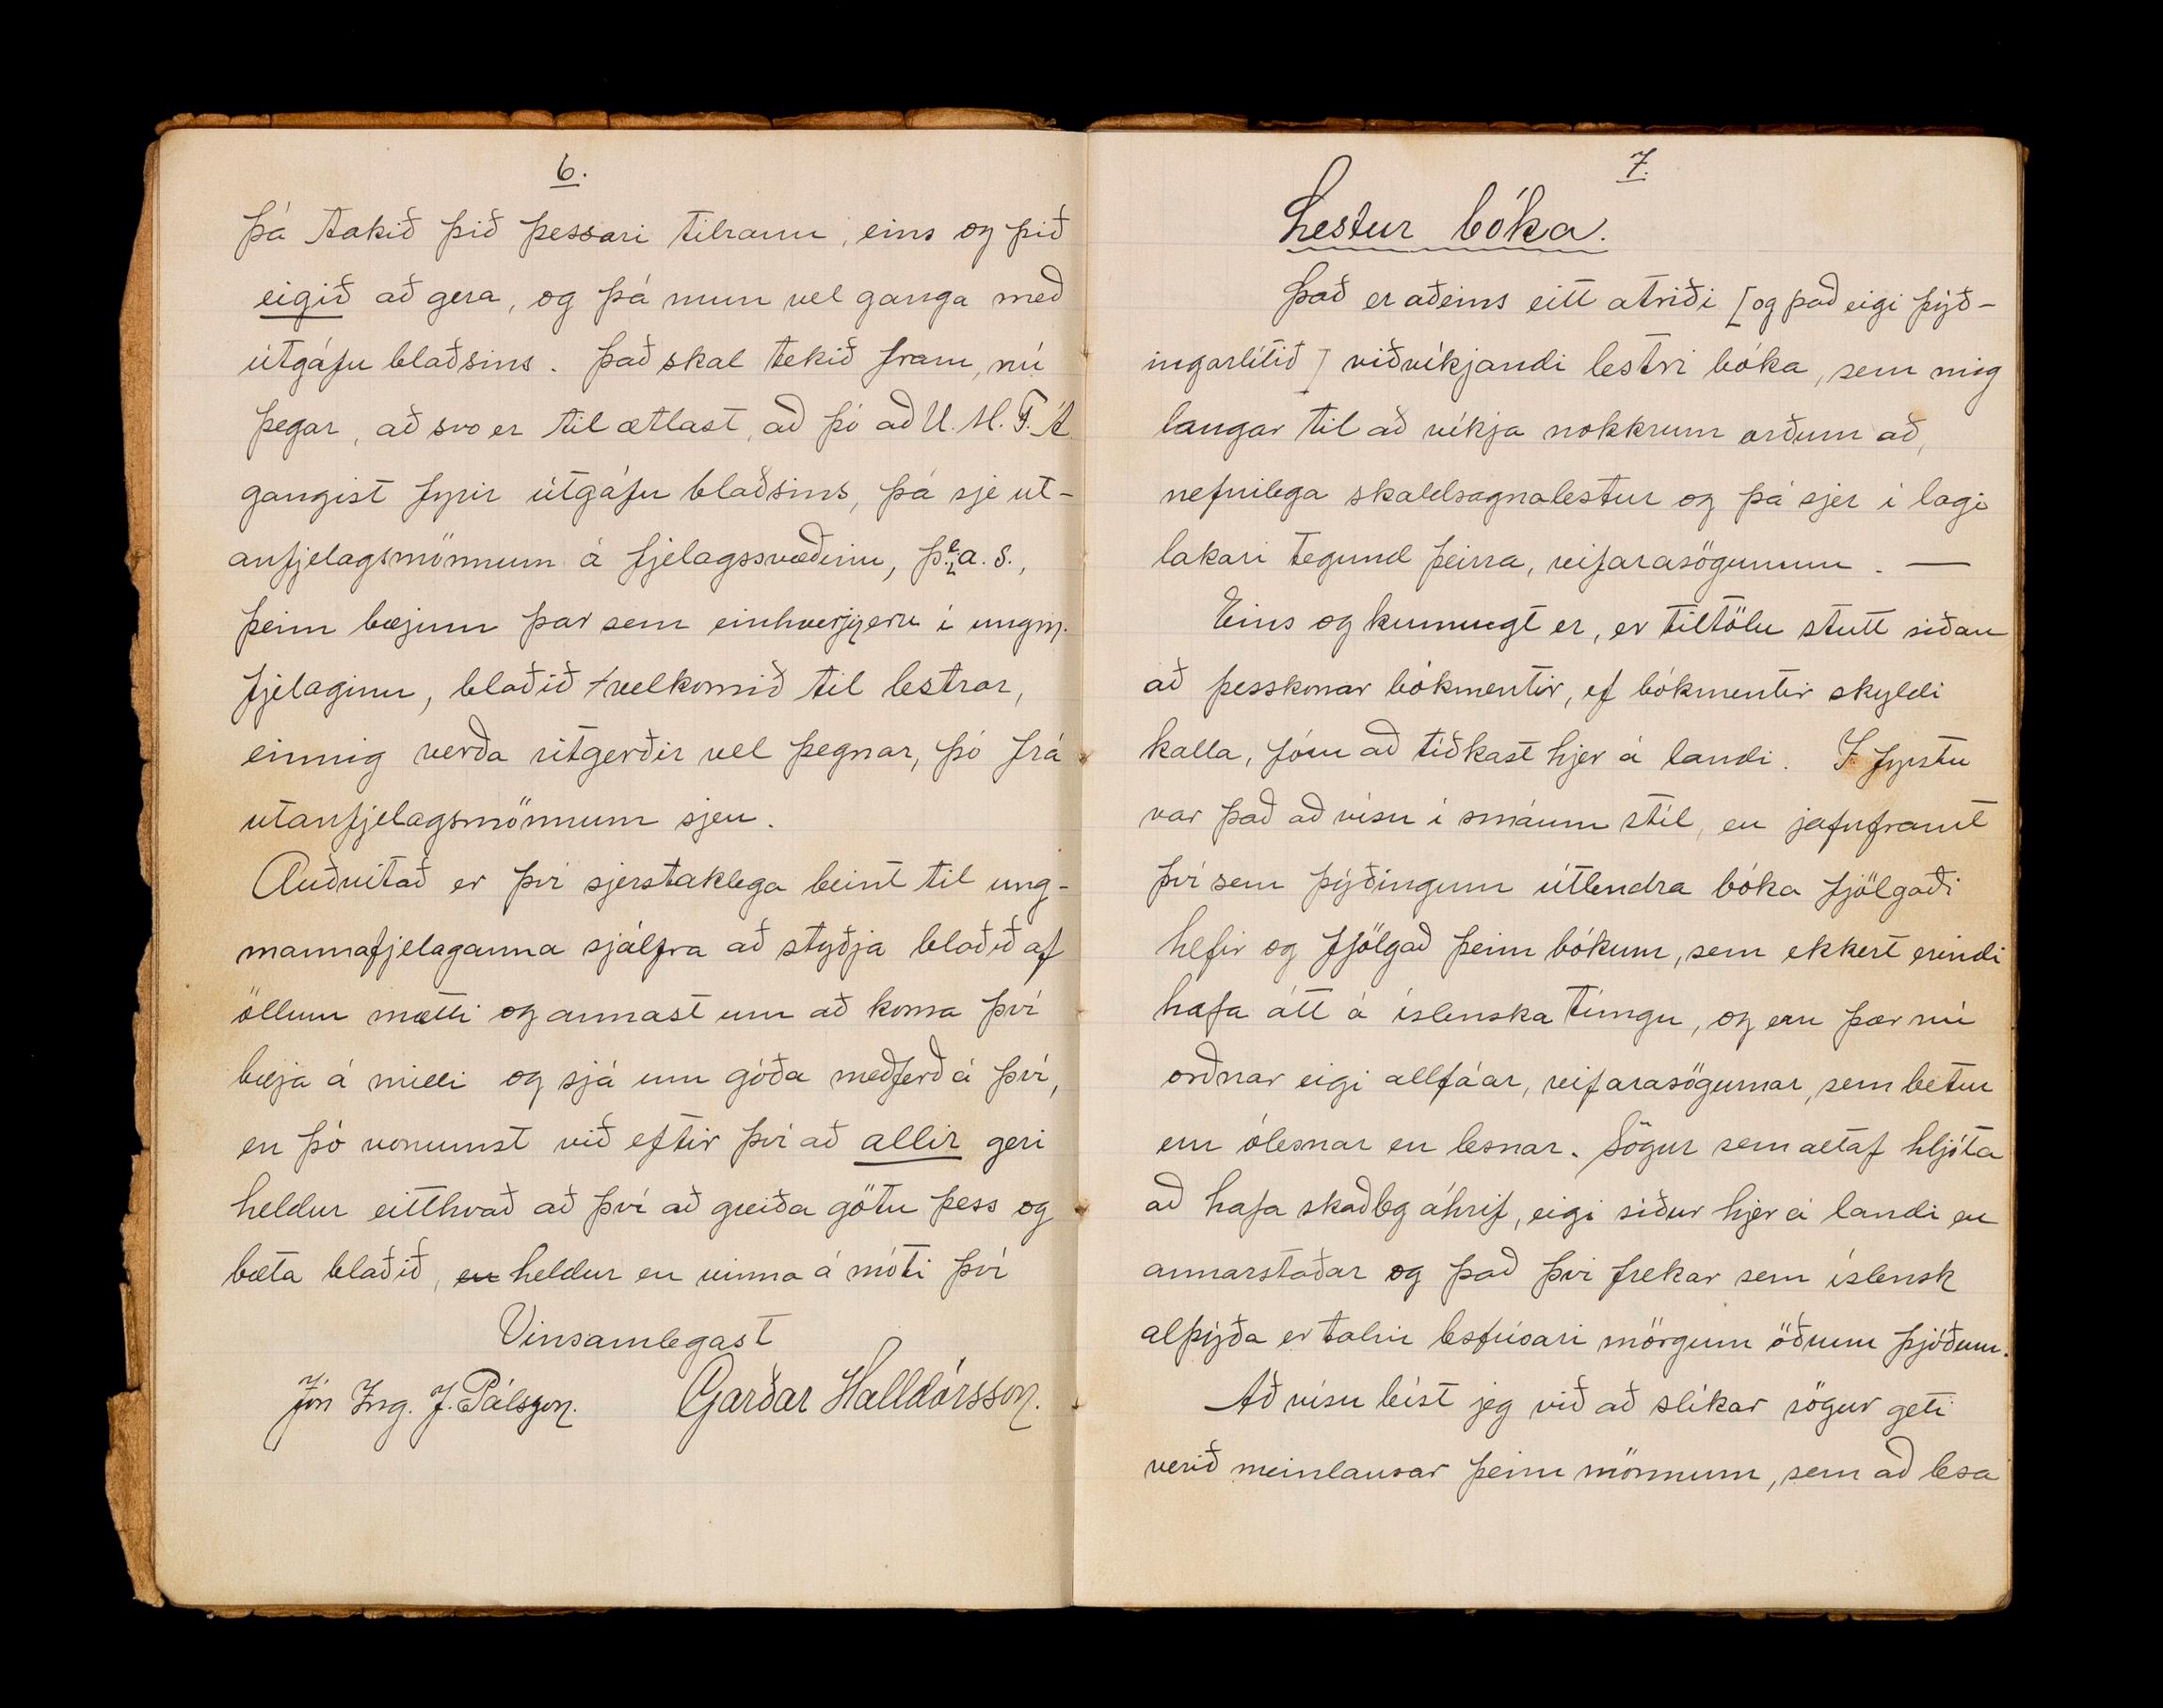 6.
þá takið þið þessari tilraun, eins og þið
eigið að gera, og þá mun vel ganga með
útgáfu blaðsins. Það skal tekið fram, nú
þegar, að svo er til ætlast, að þó að U. M. F. Á
gangist fyrir útgáfu blaðsins, þá sje ut-
anfjelagsmönnum á fjelagssvæðinu, þ. e. a. s.,
þeim bæjum þar sem einhverjir eru í ungm.
fjelaginu, blaðið velkomið til lestrar,
einnig verða ritgerðir vel þegnar, þó frá
utanfjelagsmönnum sjeu.
Auðvitað er því sjerstaklega beint til ung-
mannafjelaganna sjálfra að styðja blaðið af
öllum mætti og annast um að koma því
bæja á milli og sjá um góða meðferð á því,
en þó vonumst við eftir því að allir geri
heldur eitthvað að því að greiða götu þess og
bæta blaðið, en heldur en vinna á móti því
Vinsamlegast
Jón Ing. J. Pálsson. Garðar Halldórsson.
7.
Lestur bóka.
Það er aðeins eitt atriði [og það eigi þýð-
ingarlítið] viðvíkjandi lestri bóka, sem mig
langar til að víkja nokkrum orðum að,
nefnilega skaldsagnalestur og þá sjer í lagi
lakari tegund þeirra, reifarasögunum. —
Eins og kunnugt er, er tiltölu stutt siðan
að þesskonar bókmentir, ef bókmentir skyldi
kalla, fóru að tíðkast hjer á landi. I fyrstu
var það að vísu í smáum stíl, en jafnframt
því sem þýðingum útlendra bóka fjölgaði
hefir og fjölgað þeim bókum, sem ekkert erindi
hafa átt á íslenska tungu, og eru þær nú
orðnar eigi allfáar, reifarasögurnar, sem betur
eru ólesnar en lesnar. Sögur sem altaf hljóta
að hafa skaðleg áhrif, eigi siður hjer á landi en
annarstaðar og það því frekar sem íslensk
alþýða er talin lesfúsari mörgum öðrum þjóðum.
Að vísu leist jeg við að slíkar sögur geti
verið meinlausar þeim mönnum, sem að lesa